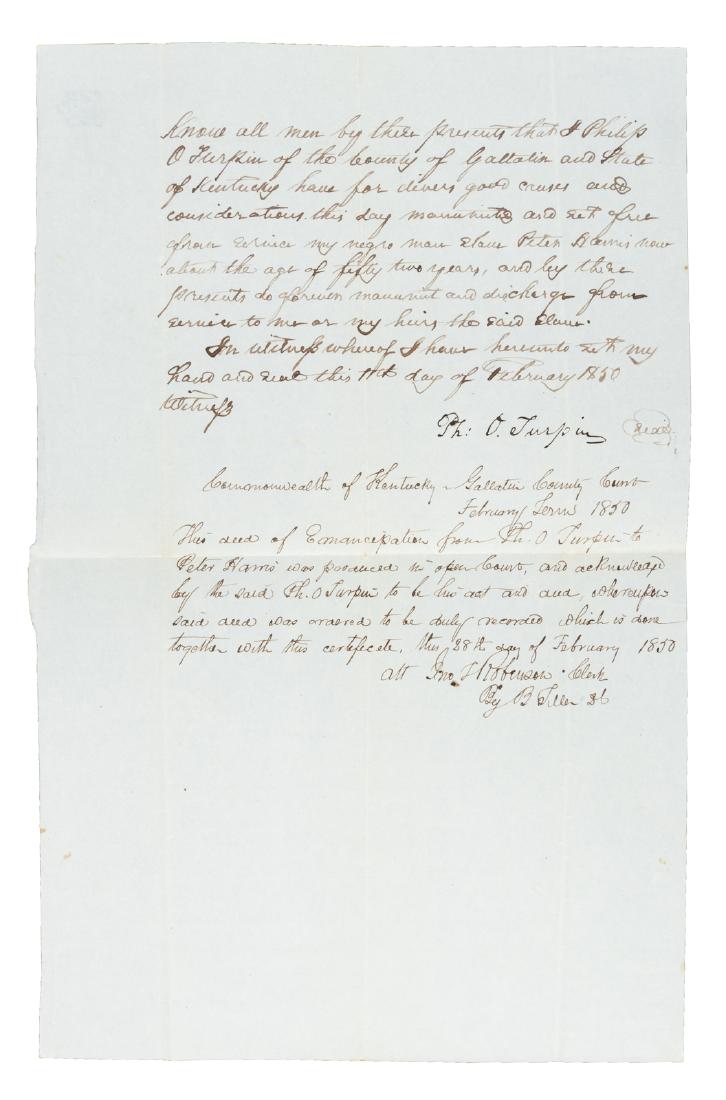 Know all men by these presents that I Philip
O Turpin of the County of Gallatin and State
of Kentucky have for divers good causes and
considerations this day manumited and set free
from service my negro man slave Peter Harris now
about the age of fifty two years, and by these
presents do forever manumit and discharge from
service to me or my heirs the said slave.
In witness whereof I have hereunto set my
hand and seal this 11th day of February 1850
Witness
Ph: O. Turpin (seal)
Commonwealth of Kentucky - Gallatin County Court
February Term 1850
This deed of Emancipation from Ph. O Turpin to
Peter Harris was produced in open Court, and acknowledged
by the said Ph. O Turpin to be his act and deed, whereupon
said deed was ordered to be duly recorded which is done
together with this certificate, this 28th day of February 1850
Att Jno J Robinson - Clerk
By B Tiller DC